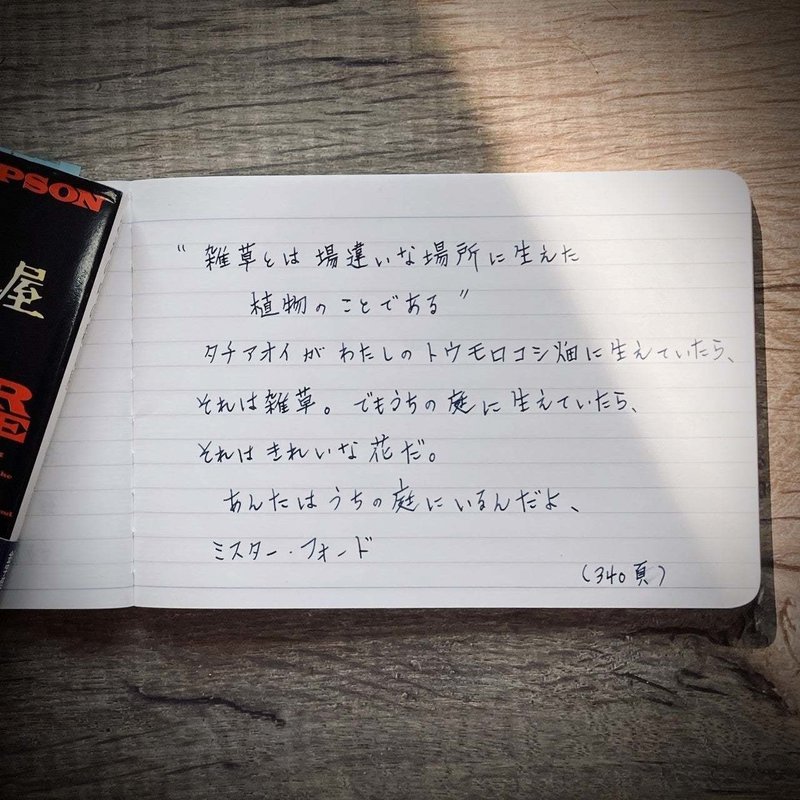 PSON
屋
R
E
“雑草とは場違いな場所に生えた
植物のことである”
タチアオイがわたしのトウモロコシ畑に生えていたら、
それは雑草。でもうちの庭に生えていたら、
それはきれいな花だ。
あんたはうちの庭にいるんだよ、
ミスター・フォード
(340頁)